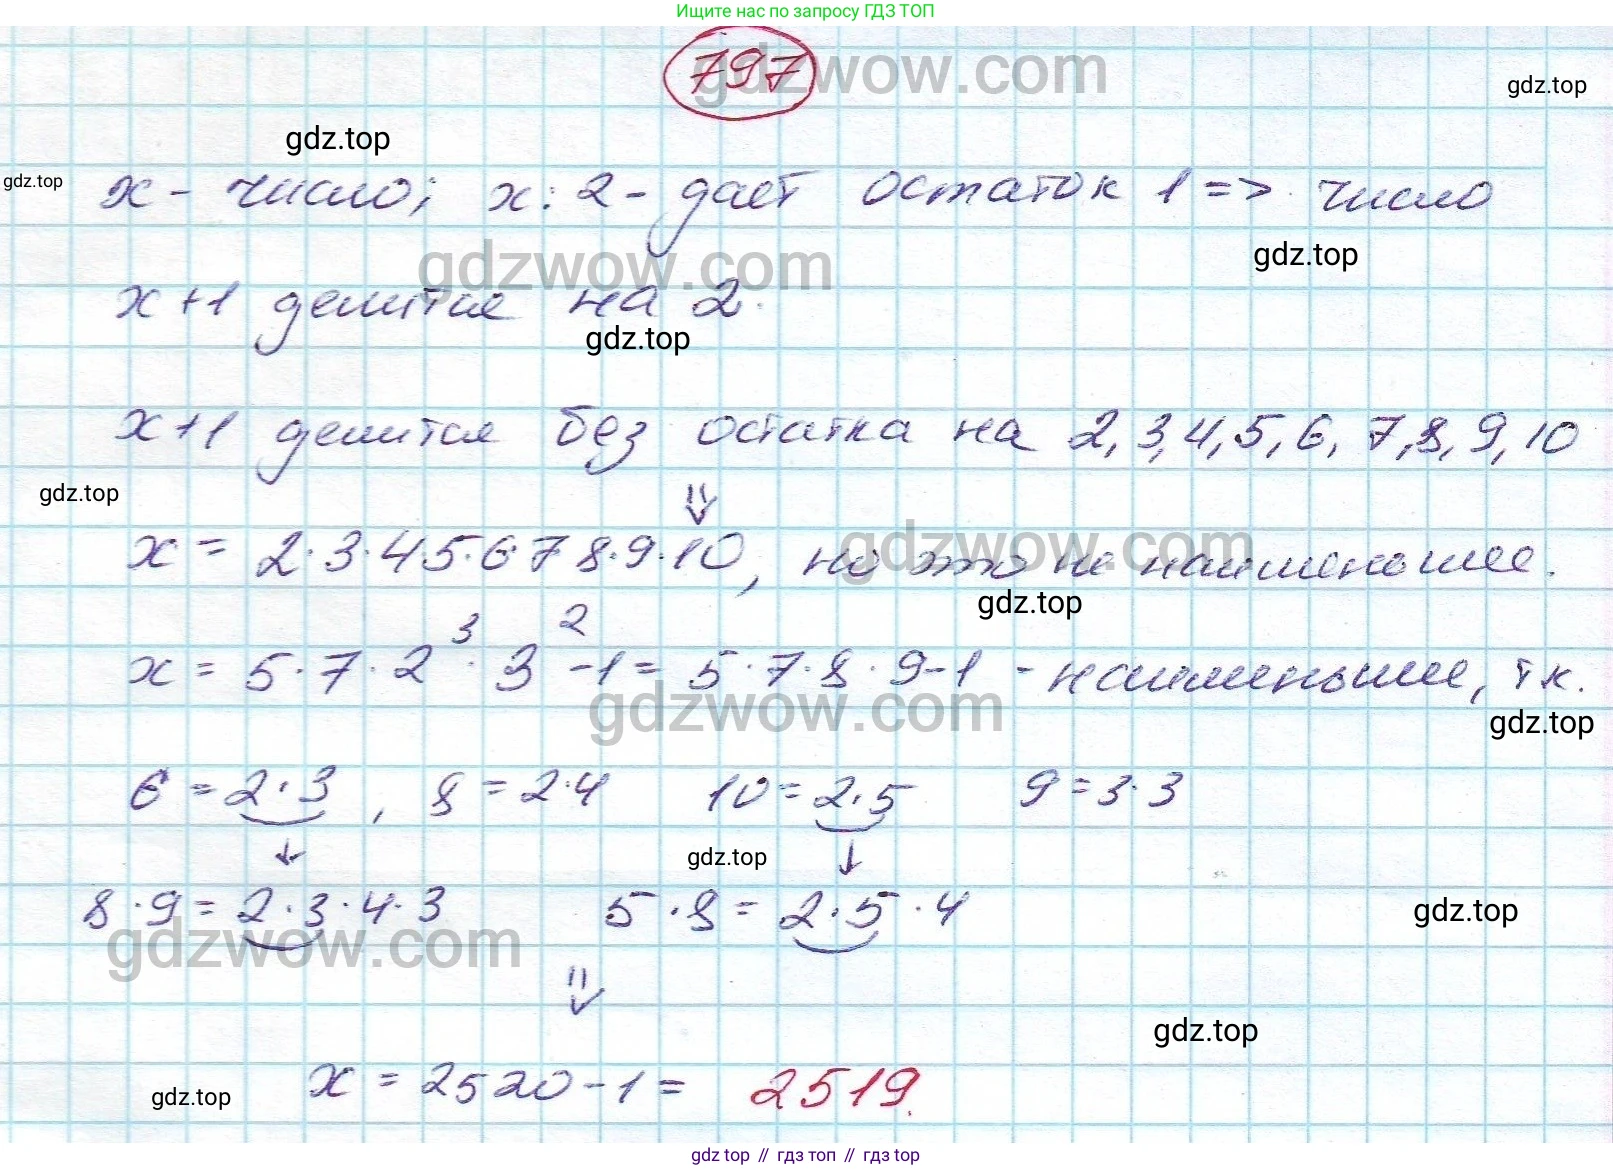 Ищите нас по запросу ГДЗ ТОП
797
gdzwow.com
gdz.top
gdz.top
gdz.top
x - число; x : 2 - дает остаток 1 => число
gdzwow.com
gdz.top
x+1 делится на 2.
gdz.top
x+1 делится без остатка на 2, 3, 4, 5, 6, 7, 8, 9, 10
gdz.top
⇓
x = 2·3·4·5·6·7·8·9·10, но это не наименьшее.
gdzwow.com
gdz.top
x = 5·7·2³·3² - 1 = 5·7·8·9-1 - наименьшее, т.к.
gdzwow.com
gdz.top
6 = 2·3, 8 = 2·4 10 = 2·5 9 = 3·3
gdz.top
8·9 = 2·3·4·3 5·8 = 2·5·4
gdz.top
gdzwow.com
⇓
gdz.top
x = 2520 - 1 = 2519.
gdz.top
gdz top // гдз топ // гдз top